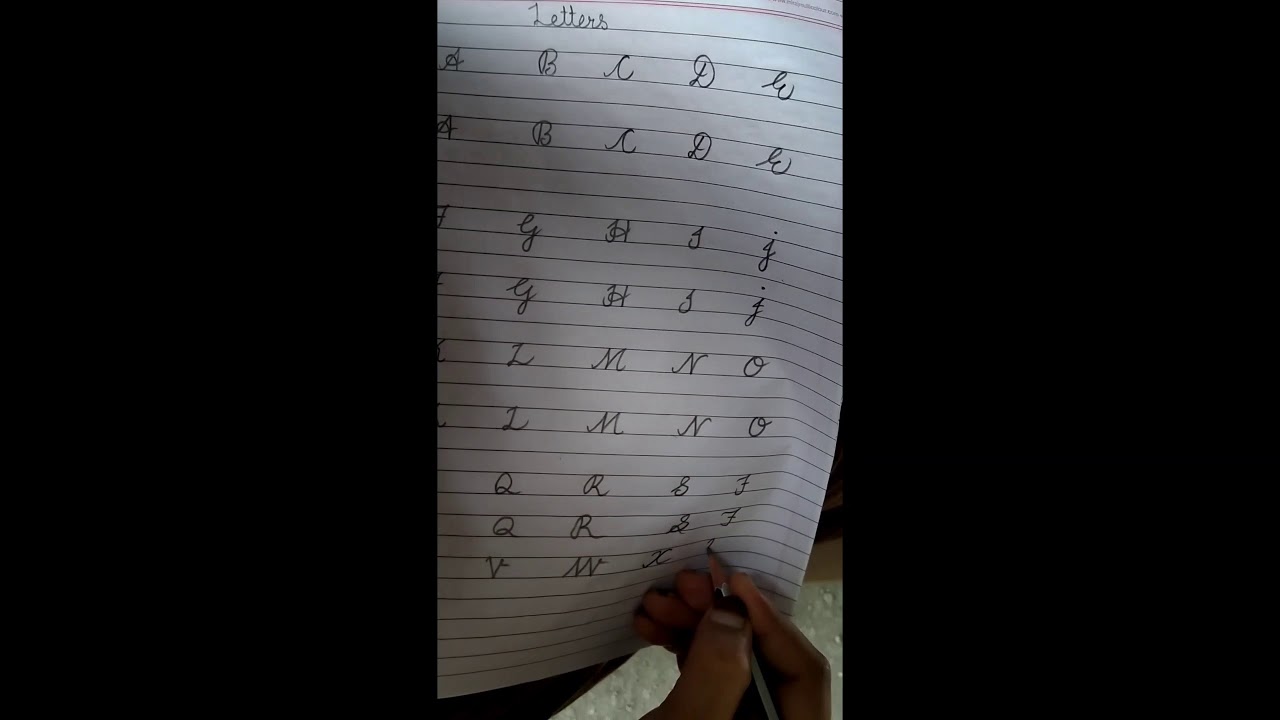 Letters
A B C D E
A B C D E
F G H I j
F G H I j
K L M N O
K L M N O
Q R S T
Q R S T
V W X